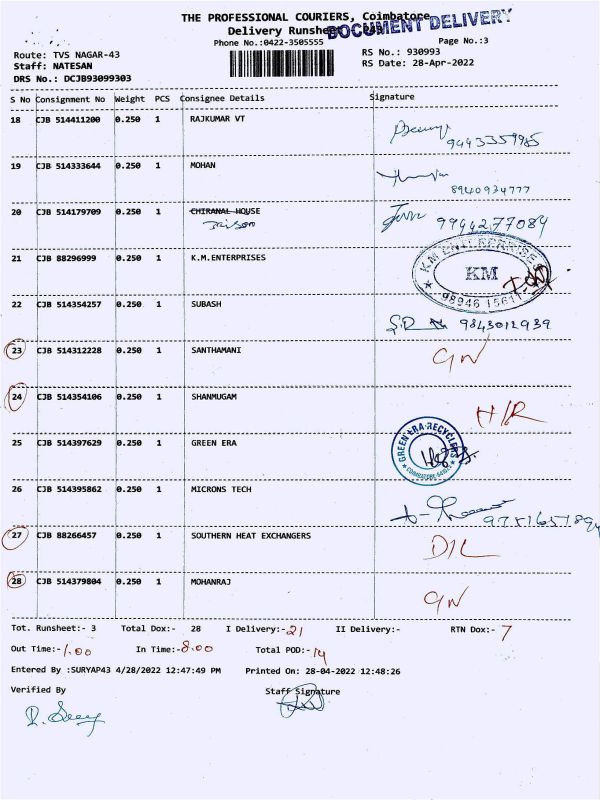 THE PROFESSIONAL COURIERS, Coimbatore
DOCUMENT DELIVERY
Delivery Runsheet
Phone No.:0422-3505555 Page No.:3
Route: TVS NAGAR-43 RS No.: 930993
Staff: NATESAN RS Date: 28-Apr-2022
DRS No.: DCJB93099303
S No Consignment No Weight PCS Consignee Details Signature
18 CJB 514411200 0.250 1 RAJKUMAR VT
9443359985
19 CJB 514333644 0.250 1 MOHAN
8940934777
20 CJB 514179709 0.250 1 CHIRANAL HOUSE
9994277084
21 CJB 88296999 0.250 1 K.M.ENTERPRISES
KM ENTERPRISES
KM
98946 15611
22 CJB 514354257 0.250 1 SUBASH
9843012939
23 CJB 514312228 0.250 1 SANTHAMANI
GN
24 CJB 514354106 0.250 1 SHANMUGAM
H/R
25 CJB 514397629 0.250 1 GREEN ERA
GREEN ERA RECYCLERS
26 CJB 514395862 0.250 1 MICRONS TECH
27 CJB 88266457 0.250 1 SOUTHERN HEAT EXCHANGERS
D/L
28 CJB 514379804 0.250 1 MOHANRAJ
GN
Tot. Runsheet:- 3 Total Dox:- 28 I Delivery:- 21 II Delivery:- RTN Dox:- 7
Out Time:- 1.00 In Time:- 8.00 Total POD:- 14
Entered By :SURYAP43 4/28/2022 12:47:49 PM Printed On: 28-04-2022 12:48:26
Verified By Staff Signature